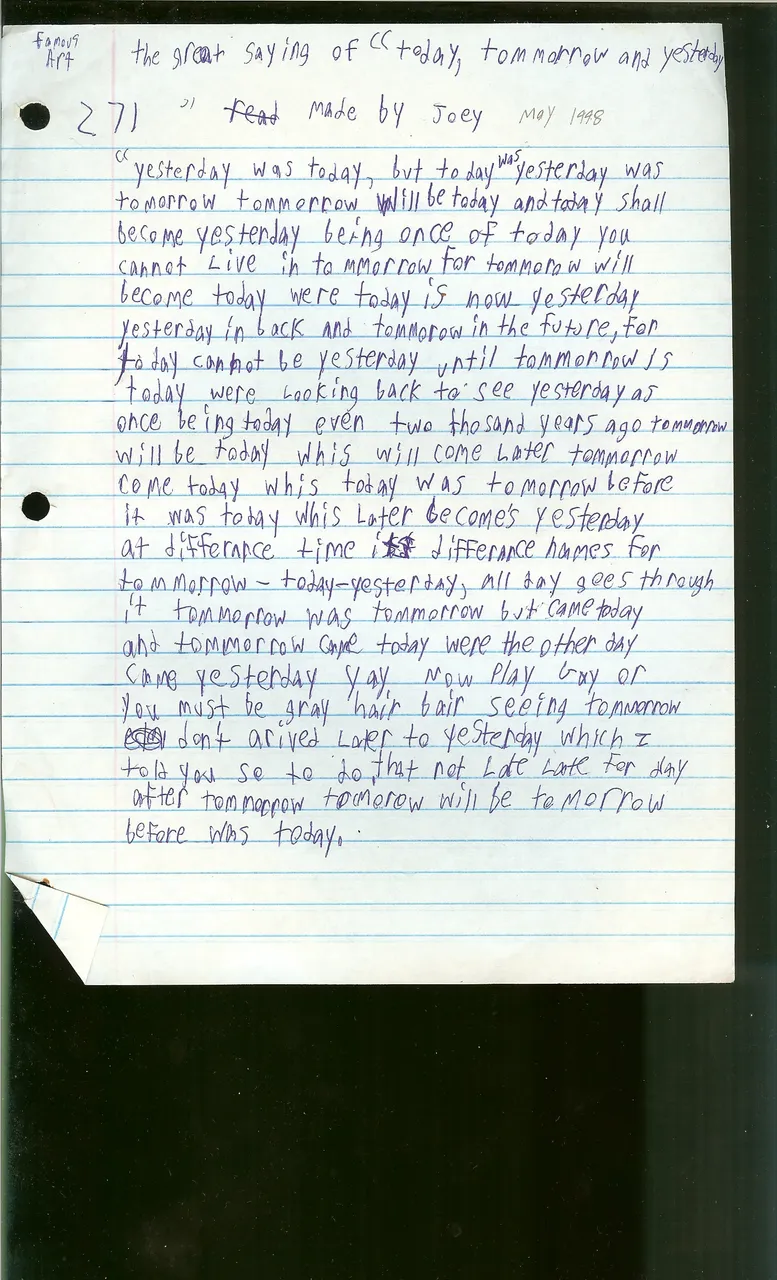 Famous
Art
the great saying of “today, tommorrow and yesterday
271 ” read made by Joey May 1998
“yesterday was today, but today was yesterday was
tomorrow tommerrow will be today and today shall
become yesterday being once of today you
cannot Live in tommorrow for tommorow will
become today were today is now yesterday
yesterday in back and tommorow in the future, for
today cannot be yesterday until tommorrow is
today were Looking back to see yesterday as
once being today even two thosand years ago tommorrow
will be today whis will come Later tommorrow
come today whis today was tomorrow before
it was today whis Later become's yesterday
at differance time its differance names for
tommorrow - today-yesterday, all day goes through
it tommorrow was tommorrow but came today
and tommorrow came today were the other day
came yesterday yay Now Play Gay or
you must be gray hair bair seeing tommorrow
don't arived Later to yesterday which I
told you so to do that not Late Late for day
after tommorrow tomorow will be tomorrow
before was today.